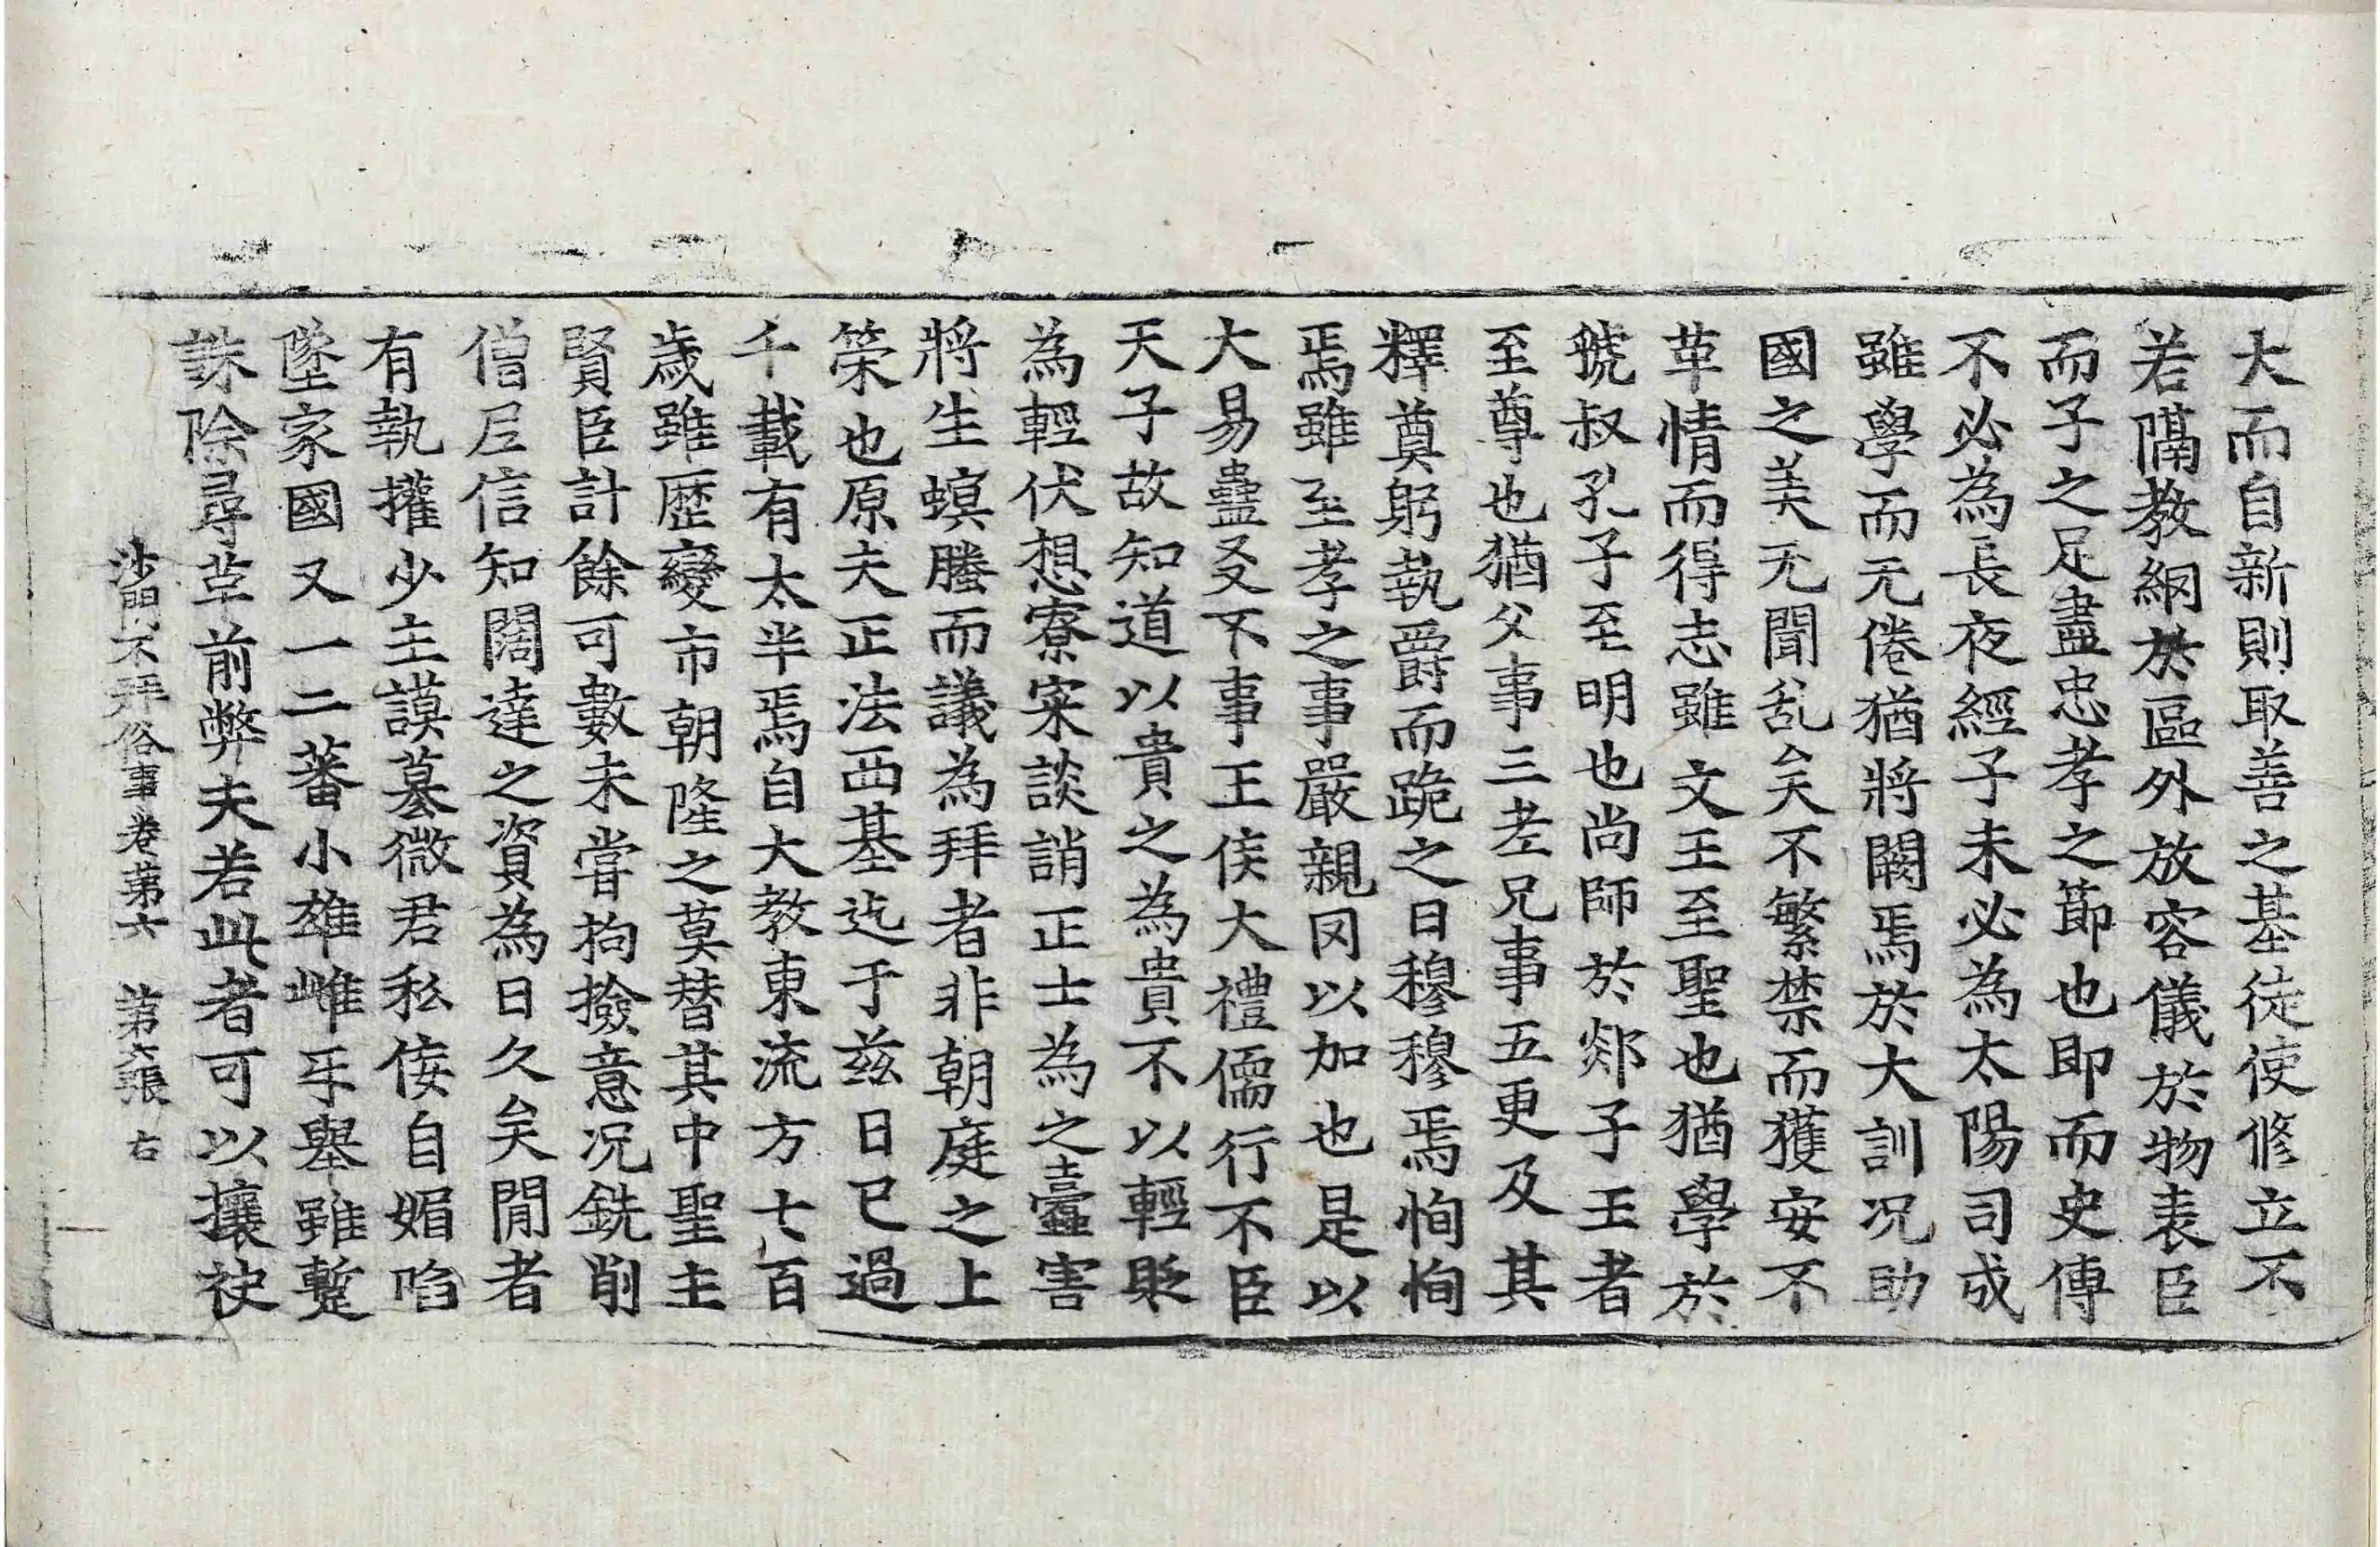 大而自新則取善之基徒使修立不
若隔教網於區外放容儀於物表臣
而子之足盡忠孝之節也即而史傳
不必為長夜經子未必為太陽司成
雖學而无倦猶將闕焉於大訓况助
國之美无聞乱矣不繁禁而獲安不
革情而得志雖文王至聖也猶學於
虢叔孔子至明也尚師於郯子王者
至尊也猶父事三老兄事五更及其
釋奠躬執爵而跪之曰穆穆焉恂恂
焉雖至孝之事嚴親罔以加也是以
大易蠱爻不事王侯大禮儒行不臣
天子故知道以貴之為貴不以輕貶
為輕伏想寮寀談誚正士為之蠹害
將生螟螣而議為拜者非朝庭之上
榮也原夫正法西基迄于兹日已過
千載有太半焉自大教東流方七百
歲雖歷變市朝隆之莫替其中聖主
賢臣計餘可數未嘗拘撿意况銑削
僧尼信知闊達之資為日久矣閒者
有執權少主謨墓微君私侫自媚啗
墜家國又一二蕃小雄雌乐舉雖蹔
誅除尋莝前弊夫若此者可以攘袂
沙門不拜俗事卷第六 第六張 右